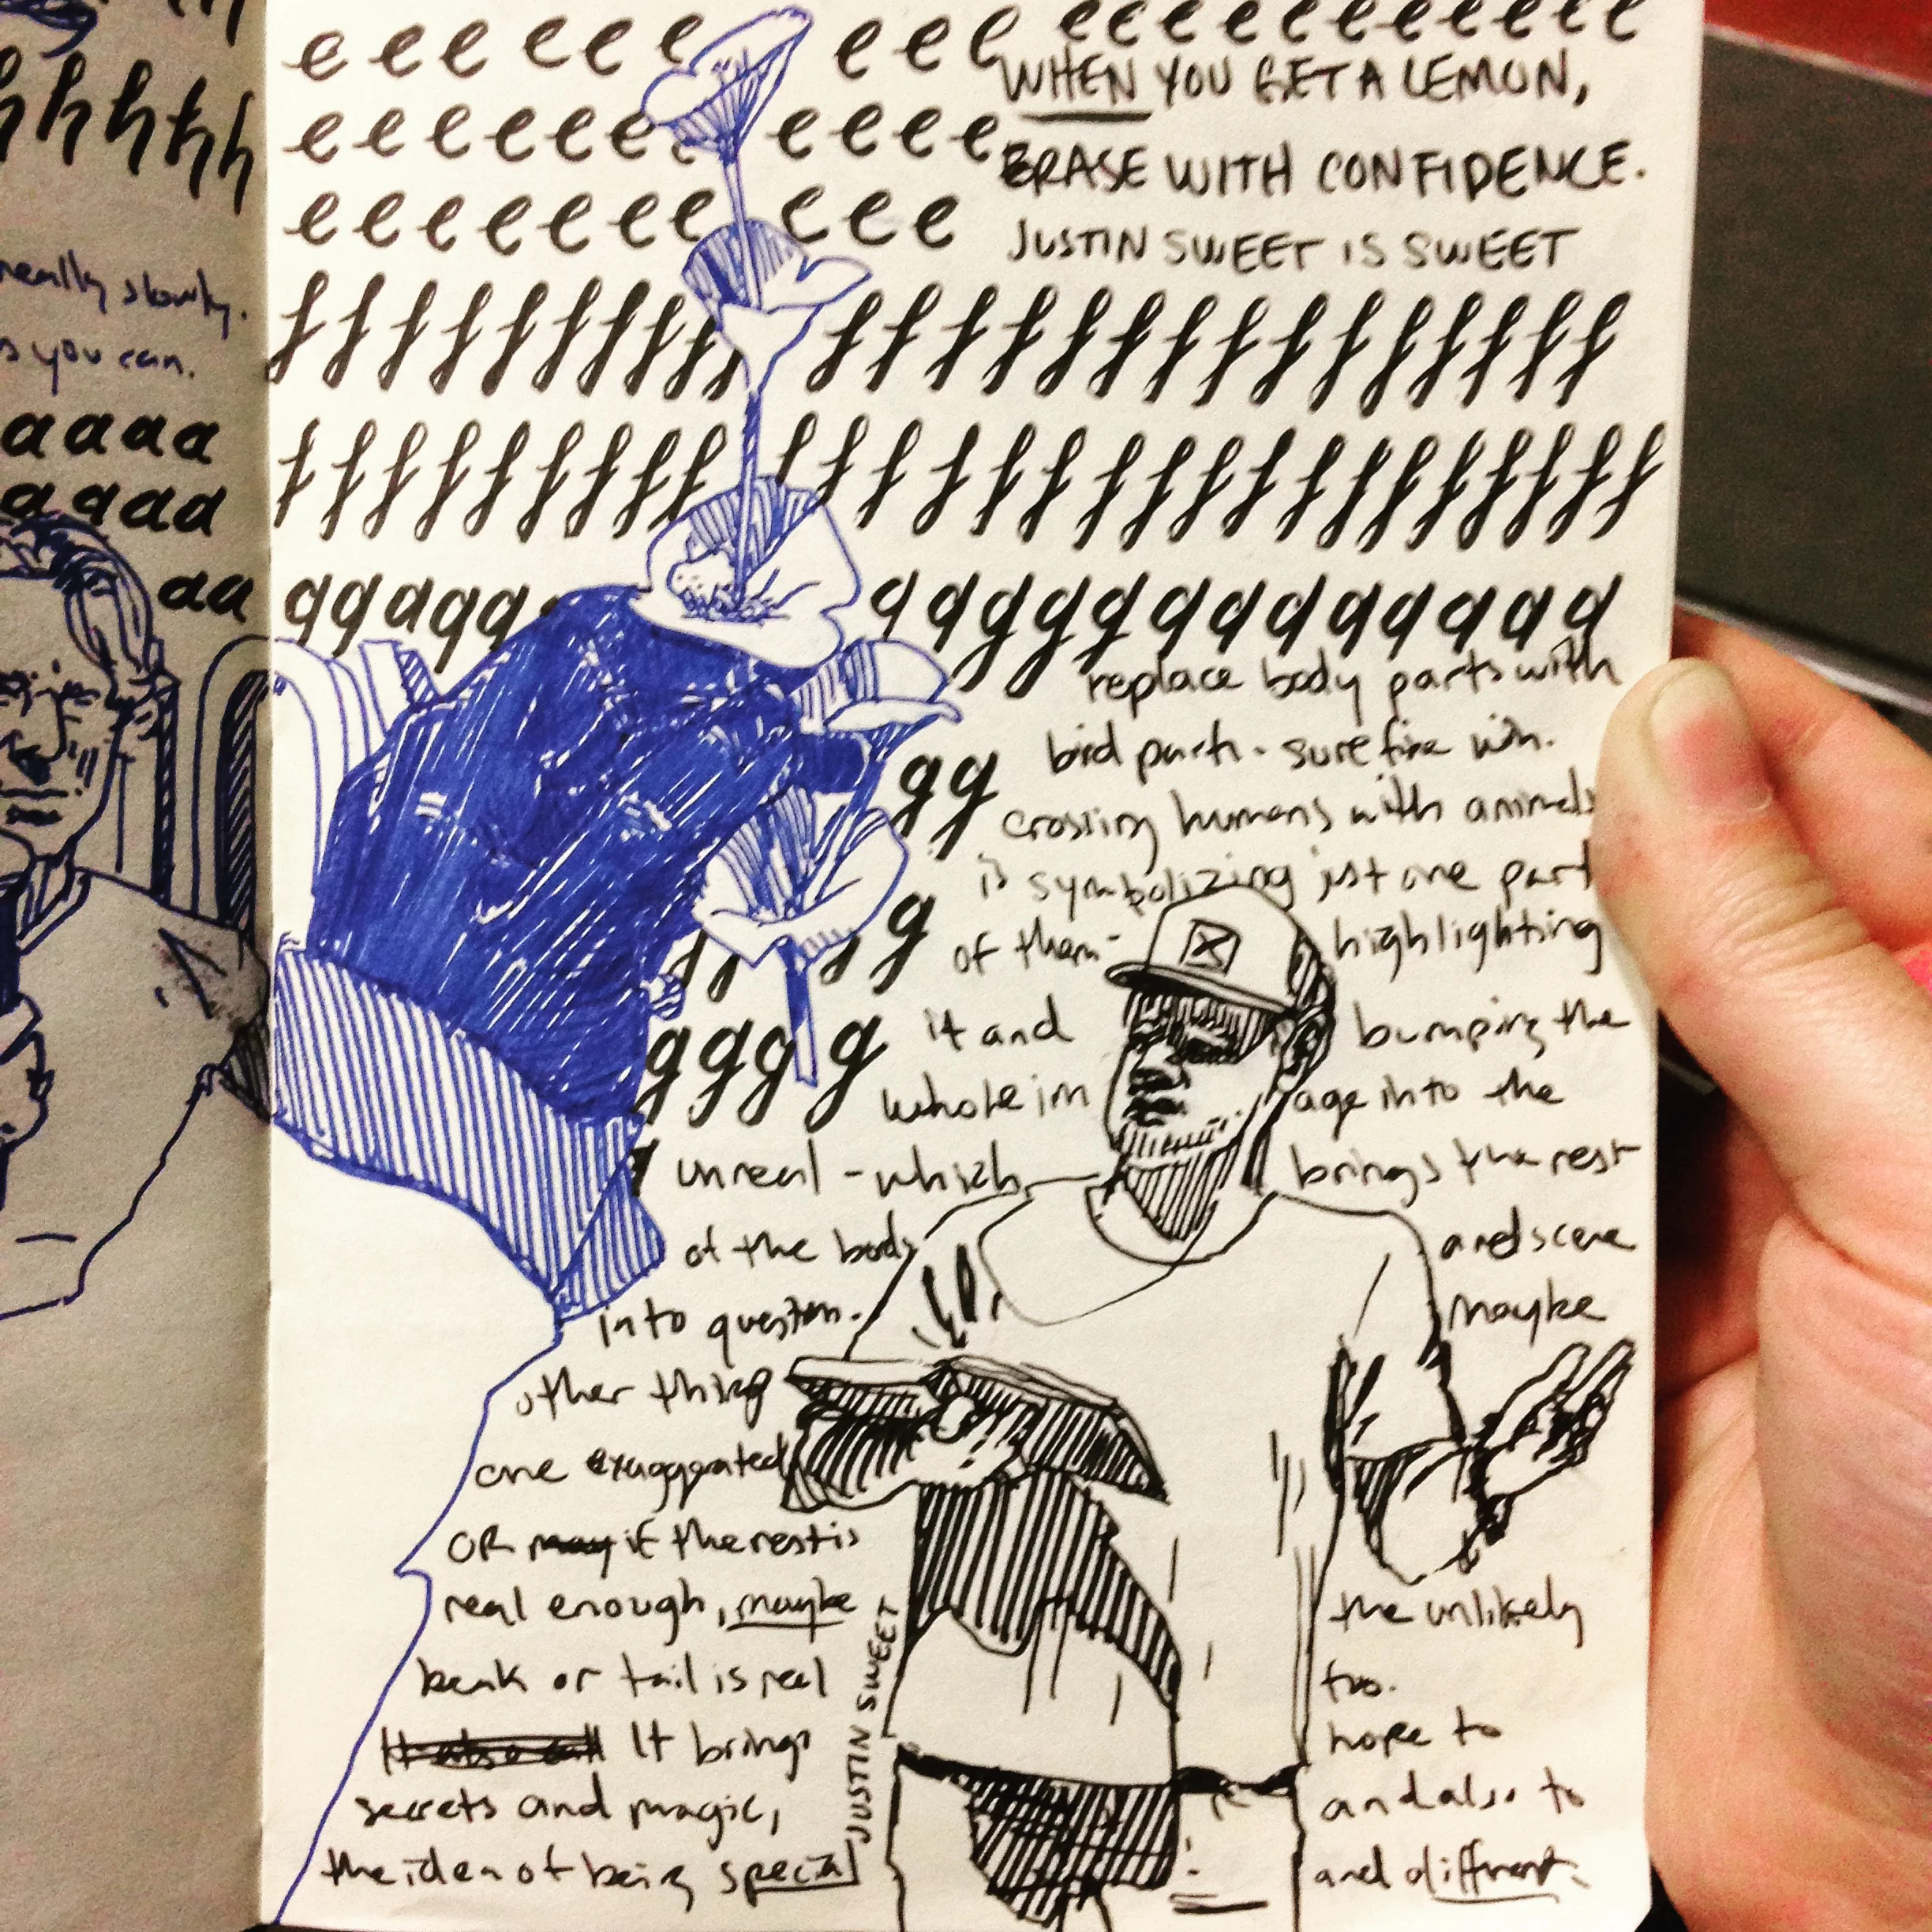 hhhhh
really slowly.
you can.
aaaa
aaaa
aa
eee eee eee eeeeeeeeeee
WHEN YOU GET A LEMON,
eeeeeee eeee
ERASE WITH CONFIDENCE.
eeeeeee eee
JUSTIN SWEET IS SWEET
fffffffff ffffffffffffff
fffffffff ffffffffffffffff
ggggg ggggggggggggg
replace body parts with
gg
bird parts. surefire win.
crossing humans with animals
is symbolizing just one part
g
of them - highlighting
gggg
it and bumping the
whole im age into the
unreal - which brings the rest
of the body and scene
into question. Maybe
other thing
one exaggerated
OR may if the rest is
real enough, maybe the unlikely
beak or tail is real too.
It brings hope to
secrets and magic, and also to
the idea of being special and different.
JUSTIN SWEET